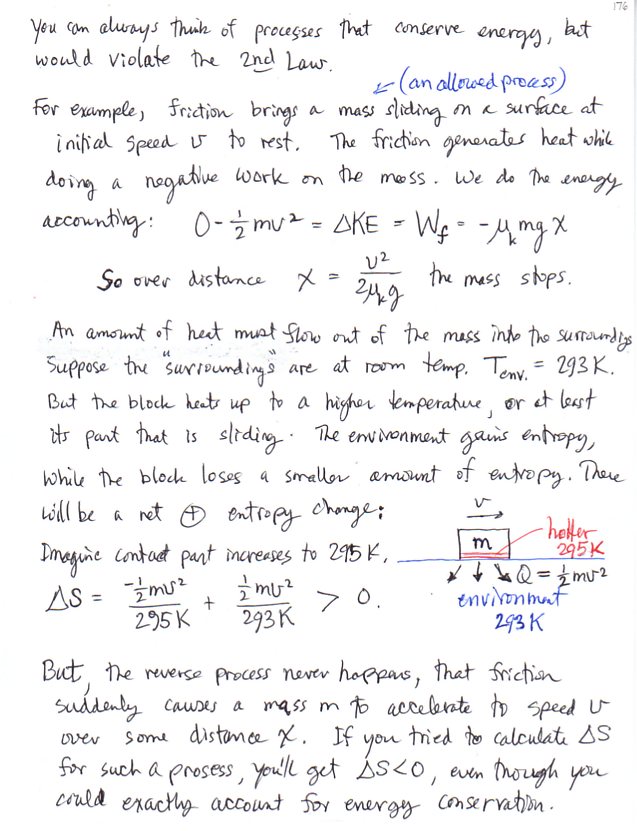 176
You can always think of processes that conserve energy, but
would violate the 2nd Law.
(an allowed process)
For example, friction brings a mass sliding on a surface at
initial speed v to rest. The friction generates heat while
doing a negative work on the mass. We do the energy
accounting: 0 - 1/2 mv² = ΔKE = W_f = -μ_k mg x
So over distance x = v²/2μ_k g the mass stops.
An amount of heat must flow out of the mass into the surroundigs
Suppose the "surroundings" are at room temp. T_env. = 293 K.
But the block heats up to a higher temperature, or at least
its part that is sliding. The environment gains entropy,
while the block loses a smaller amount of entropy. There
will be a net ⊕ entropy change:
Imagine contact part increases to 295 K.
ΔS = -1/2 mv²/295K + 1/2 mv²/293K > 0.
v
m
hotter
295K
Q = 1/2 mv²
environment
293K
But, the reverse process never happens, that friction
suddenly causes a mass m to accelerate to speed v
over some distance x. If you tried to calculate ΔS
for such a prosess, you'll get ΔS<0, even though you
could exactly account for energy conservation.